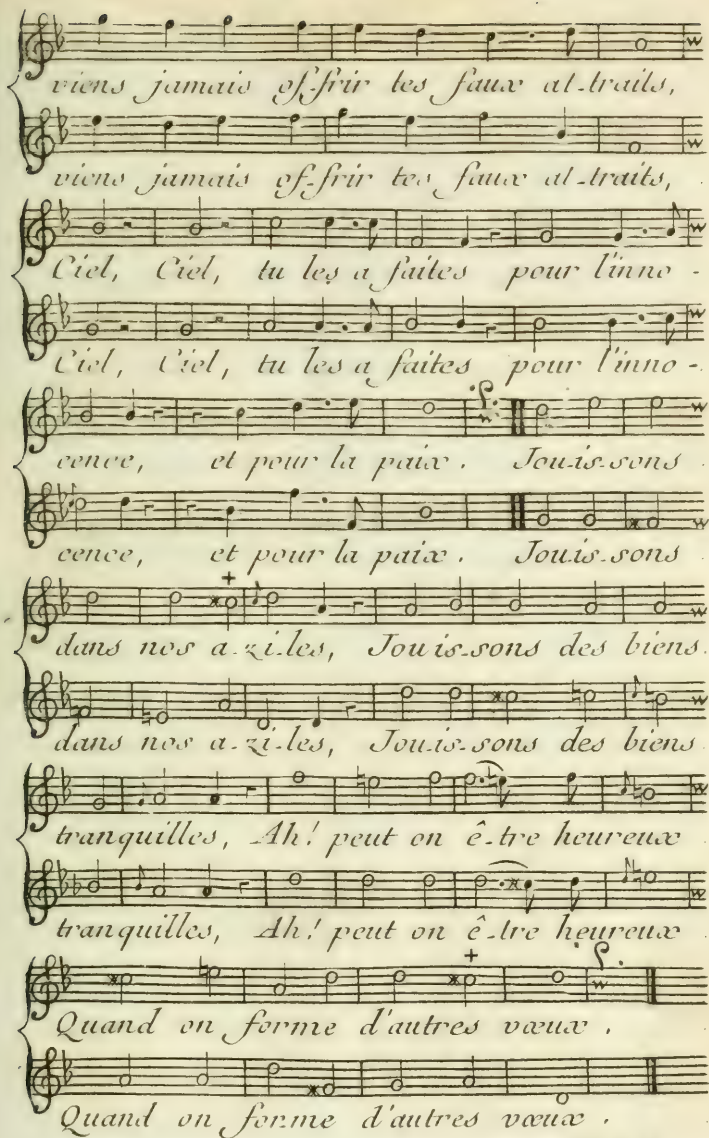 viens jamais of-frir tes faux at-traits,
viens jamais of-frir tes faux at-traits,
Ciel, Ciel, tu les a faites pour l'inno-
Ciel, Ciel, tu les a faites pour l'inno-
cence, et pour la paix. Jou-is-sons
cence, et pour la paix. Jou-is-sons
dans nos a-zi-les, Jou-is-sons des biens
dans nos a-zi-les, Jou-is-sons des biens
tranquilles, Ah! peut on ê-tre heureux
tranquilles, Ah! peut on ê-tre heureux
Quand on forme d'autres vœux.
Quand on for-me d'autres vœux.